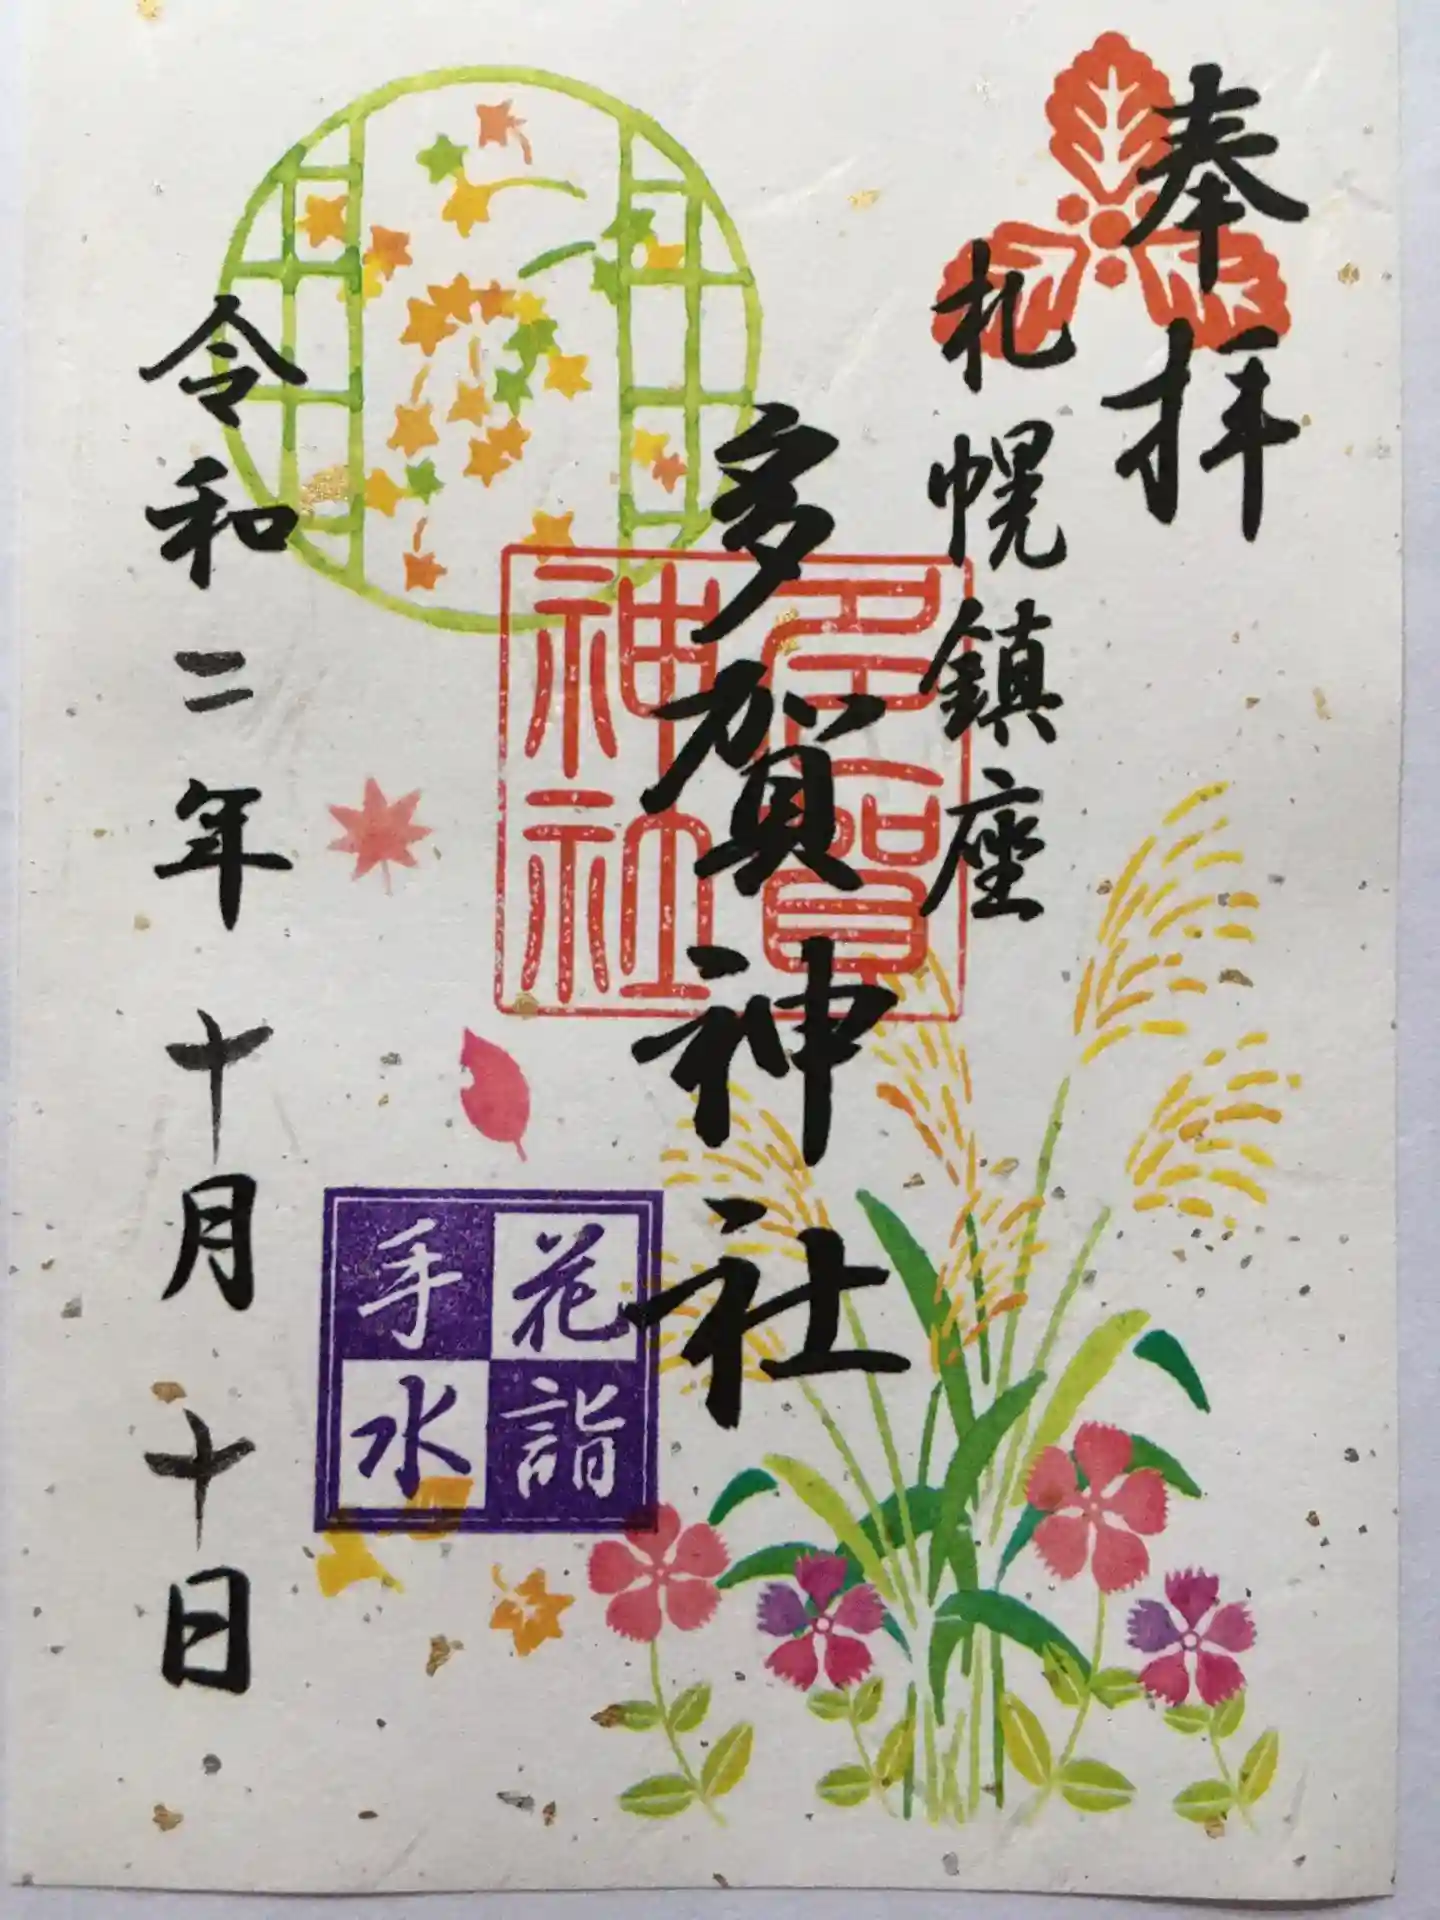 奉拝
札幌鎮座
多賀神社
多賀神社
花詣
手水
令和二年十月十日